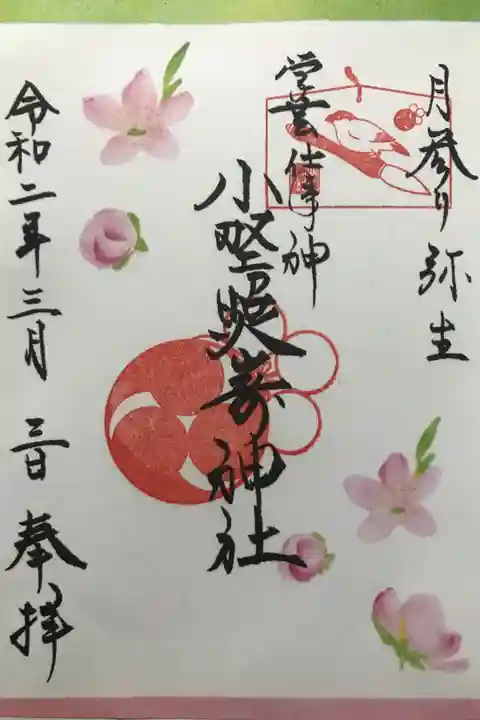 月参り 弥生
学芸仕事神
小野照崎神社
令和二年三月 三日 奉拝